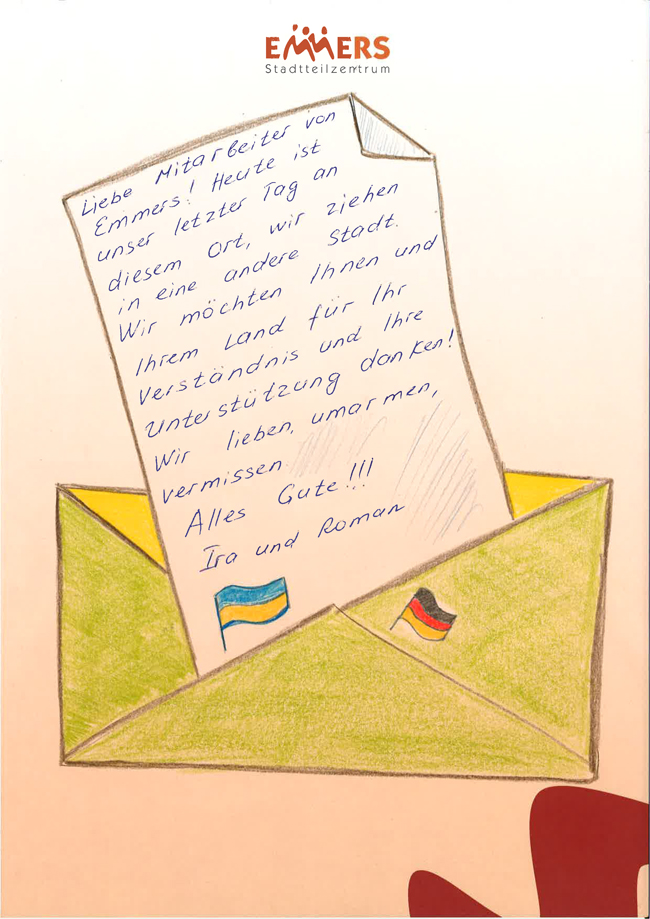 EMMERS
Stadtteilzentrum
Liebe Mitarbeiter von
Emmers! Heute ist
unser letzter Tag an
diesem Ort, wir ziehen
in eine andere Stadt.
Wir möchten Ihnen und
Ihrem Land für Ihr
Verständnis und Ihre
Unterstützung danken!
Wir lieben, umarmen,
vermissen
Alles Gute!!!
Ira und Roman